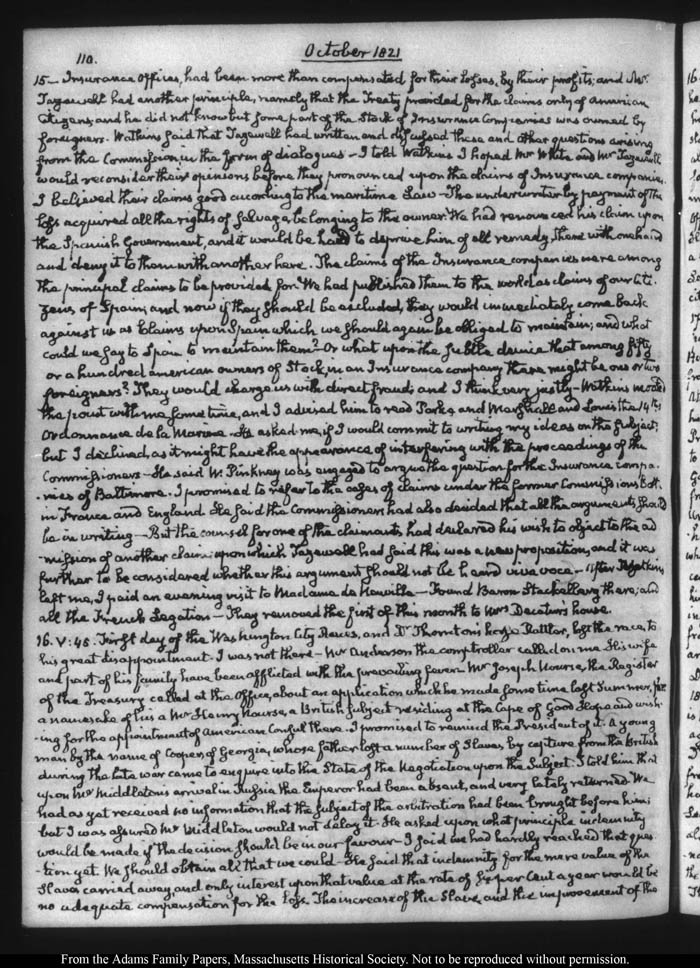 110.
October 1821
15— Insurance offices, had been more than compensated for their losses, by their profits; and Mr.
Tazewell had another principle, namely that the Treaty provided for the claims only of American
Citizens, and he did not know but some part of the Stock of Insurance Companies was owned by
foreigners. Watkins said that Tazewell had written and discussed these and other questions arising
from the Commission, in the form of dialogues — I told Watkins I hoped Mr White and Mr Tazewell
would reconsider their opinions before they pronounced upon the claims of Insurance companies.
I believed their claims good according to the maritime Law — The underwriter by payment of the
loss acquired all the rights of salvage belonging to the owner. We had renounced his claim upon
the Spanish Government, and it would be hard to deprive him of all remedy, there with one hand
and deny it to them with another here. The claims of the Insurance companies were among
the principal claims to be provided for. We had published them to the world as claims of our Citi
zens of Spain, and now if they should be excluded, they would immediately come back
against us as claims upon Spain which we should again be obliged to maintain; and what
could we say to Spain to maintain them? Or what upon the subtle device that among fifty
or a hundred American owners of Stock, in an Insurance company there might be one or two
foreigners? They would charge us with direct fraud; and I think very justly — Watkins
the point with me some time, and I advised him to read Park, and Marshall and Louis the 14ths
Ordonnance de la Marine. He asked me, if I would commit to writing my ideas on the subject;
but I declined, as it might have the appearance of interfering with the proceedings of the
Commissioners — He said W. Pinkney was engaged to argue the question for the Insurance compa
-nies of Baltimore. I promised to refer to the cases of claims under the former Commissions both
in France and England. He said the Commissioners had also decided that all the arguments should
be in writing — But the counsel for one of the claimants had declared his wish to object to the ad
-mission of another claim; upon which Tazewell had said this was a new proposition, and it was
further to be considered whether this argument should not be heard viva voce — After Watkins
left me, I paid an evening visit to Madame de Neuville — Found Baron Stackelberg there; and
all the French Legation — They removed the first of this month to Mrs Decatur's house.
16. V: 45. First day of the Washington City Races, and Dr Thornton's horse Rattler, lost the race, to
his great disappointment. I was not there — Mr Anderson the comptroller called on me. His wife
and part of his family have been afflicted with the prevailing fever. Mr Joseph Nourse, the Register
of the Treasury called at the Office, about an application which he made some time last Summer, for
a namesake of his a Mr Henry Nourse, a British subject residing at the Cape of Good Hope and wish
-ing for the appointment of American Consul there. I promised to remind the President of it. A young
man by the name of Cooper, of Georgia, whose father lost a number of Slaves, by capture from the British
during the late war came to enquire into the State of the Negotiation upon the Subject. I told him that
upon Mr Middleton's arrival in Russia the Emperor had been absent, and very lately returned. We
had as yet received no information that the subject of the arbitration had been brought before him;
but I was assured Mr Middleton would not delay it. He asked upon what principle indemnity
would be made if the decision should be in our favour — I said we had hardly reached that ques
-tion yet. We should obtain all that we could. He said that indemnity for the mere value of the
Slaves carried away, and only interest upon that value at the rate of per Cent a year would be
no adequate compensation for the loss. The increase of the Slaves, and the improvement of the
From the Adams Family Papers, Massachusetts Historical Society. Not to be reproduced without permission.